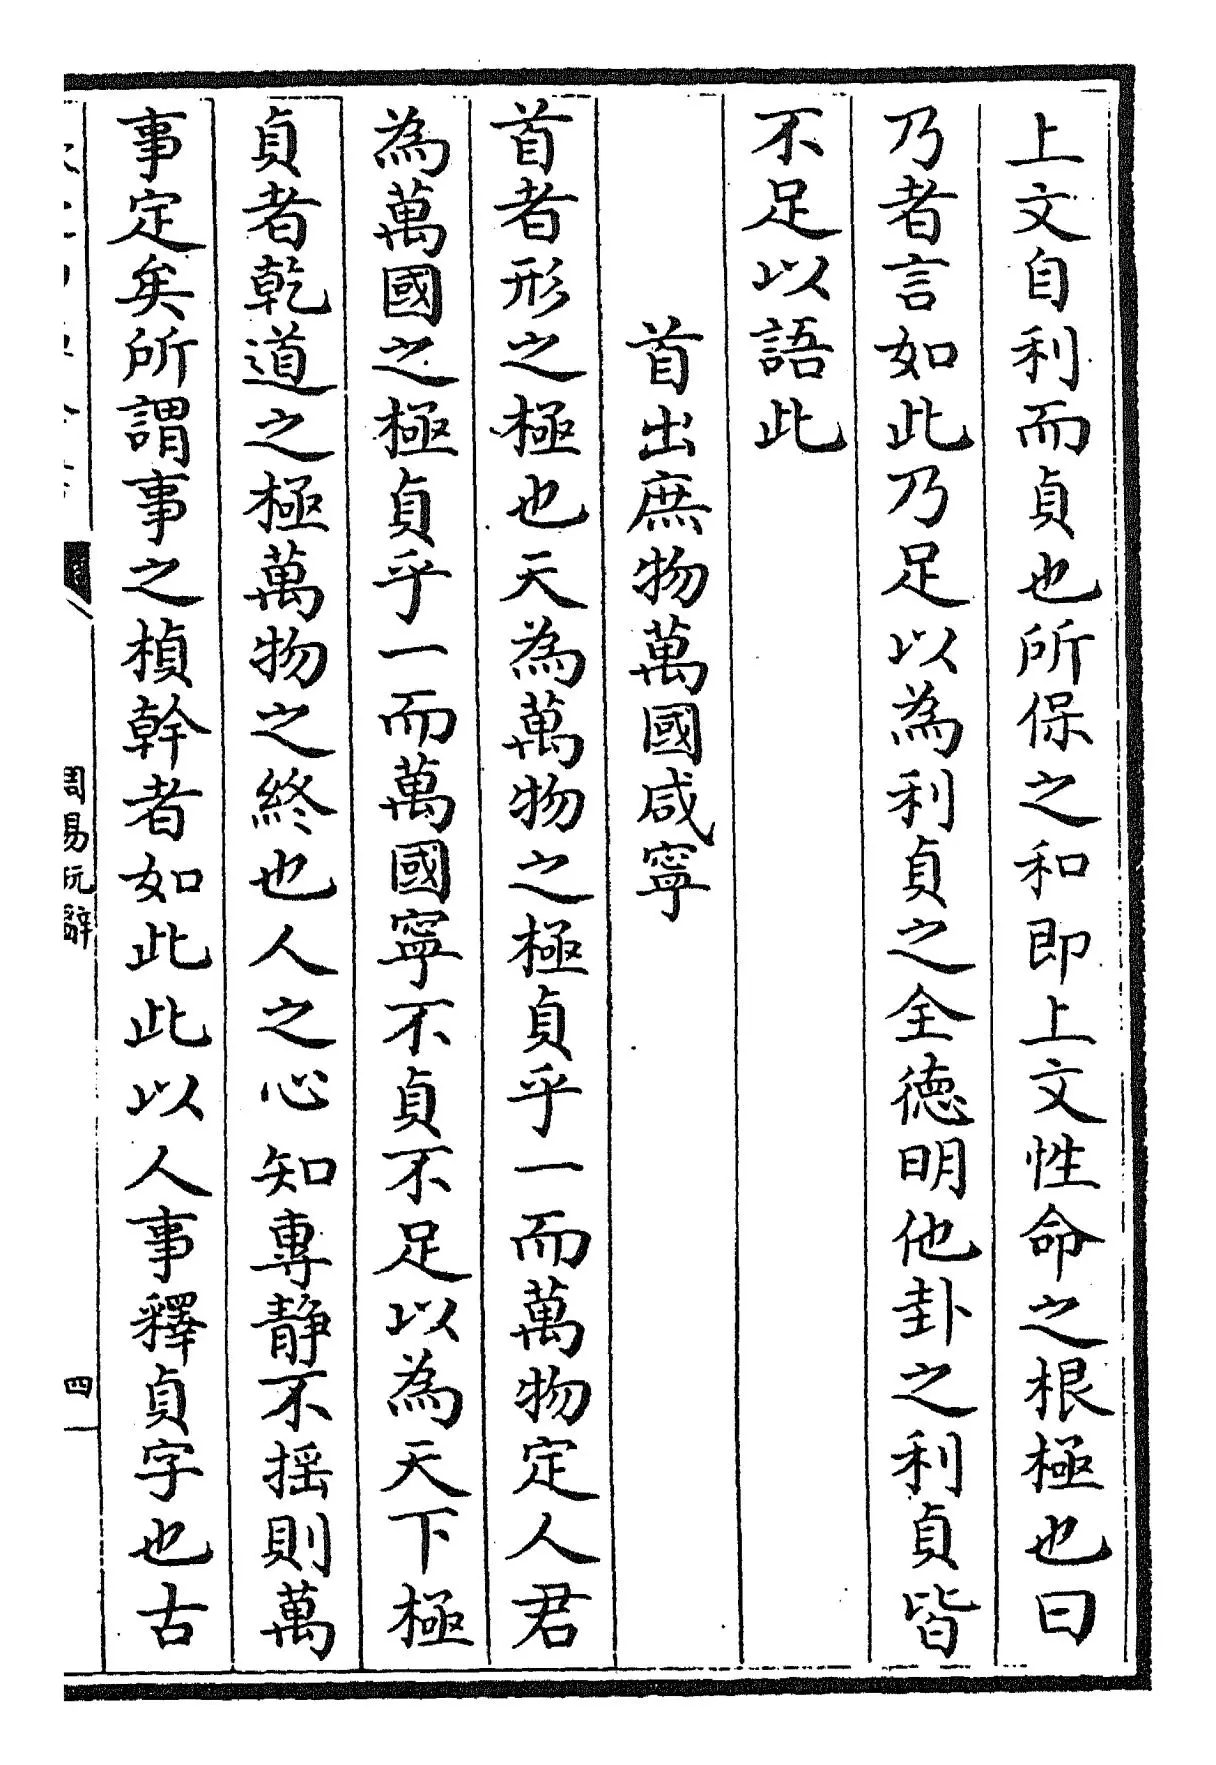 上文自利而貞也所保之和即上文性命之根極也曰
乃者言如此乃足以為利貞之全德明他卦之利貞皆
不足以語此
首出庶物萬國咸寧
首者形之極也天為萬物之極貞乎一而萬物定人君
為萬國之極貞乎一而萬國寧不貞不足以為天下極
貞者乾道之極萬物之終也人之心知專静不揺則萬
事定矣所謂事之楨幹者如此此以人事釋貞字也古
周易玩辭
四